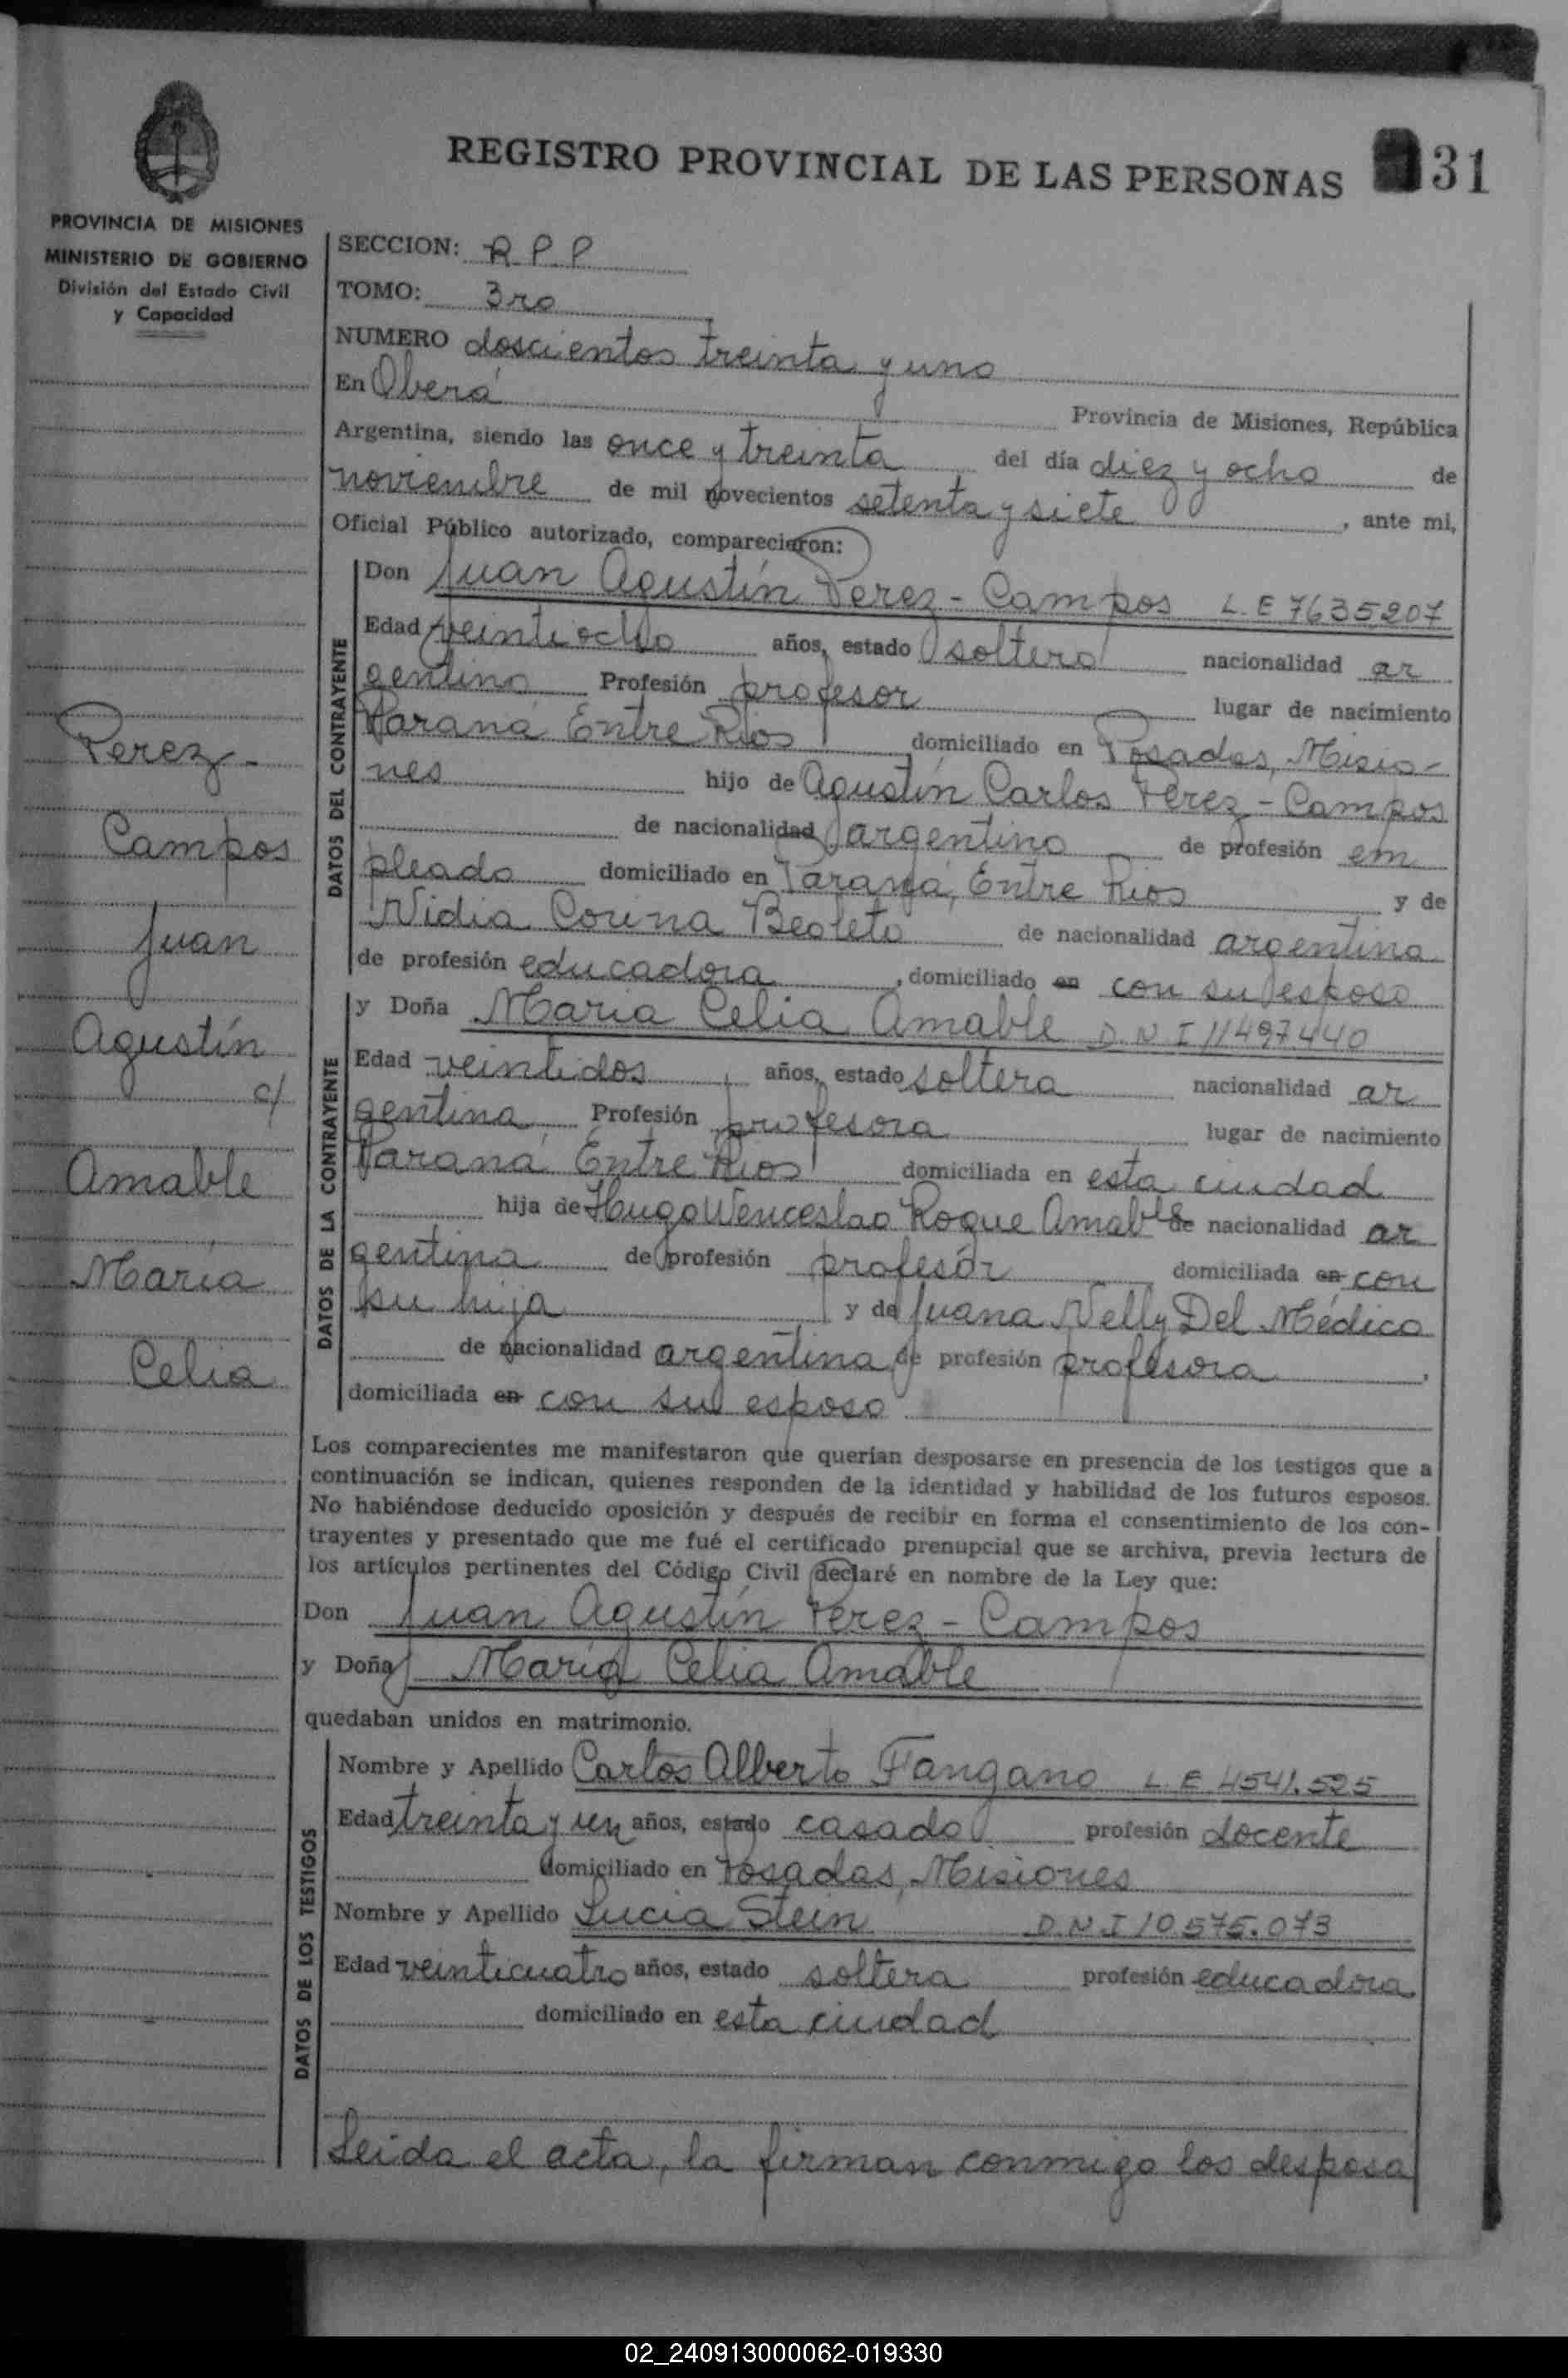 REGISTRO PROVINCIAL DE LAS PERSONAS 31
PROVINCIA DE MISIONES
MINISTERIO DE GOBIERNO
División del Estado Civil
y Capacidad
Perez-
Campos
Juan
Agustín
c/
Amable
María
Celia
SECCION: R P P
TOMO: 3ro
NUMERO doscientos treinta y uno
En Oberá Provincia de Misiones, República
Argentina, siendo las once y treinta del día diez y ocho de
noviembre de mil novecientos setenta y siete, ante mi,
Oficial Público autorizado, comparecieron:
DATOS DEL CONTRAYENTE
Don Juan Agustín Perez-Campos L.E 7635207
Edad veintiocho años, estado soltero nacionalidad ar
gentino Profesión profesor lugar de nacimiento
Paraná Entre Rios domiciliado en Posadas, Misio-
nes hijo de Agustín Carlos Perez-Campos
de nacionalidad argentino de profesión em
pleado domiciliado en Paraná, Entre Rios y de
Nidia Corina Beoleto de nacionalidad argentina
de profesión educadora, domiciliado en con su esposo
DATOS DE LA CONTRAYENTE
y Doña María Celia Amable D.N.I 11497440
Edad veintidos años, estado soltera nacionalidad ar
gentina Profesión profesora lugar de nacimiento
Paraná Entre Rios domiciliada en esta ciudad
hija de Hugo Wenceslao Roque Amable de nacionalidad ar
gentina de profesión profesor domiciliada en con
su hija y de Juana Nelly Del Médico
de nacionalidad argentina de profesión profesora,
domiciliada en con su esposo
Los comparecientes me manifestaron que querían desposarse en presencia de los testigos que a
continuación se indican, quienes responden de la identidad y habilidad de los futuros esposos.
No habiéndose deducido oposición y después de recibir en forma el consentimiento de los con-
trayentes y presentado que me fué el certificado prenupcial que se archiva, previa lectura de
los artículos pertinentes del Código Civil declaré en nombre de la Ley que:
Don Juan Agustín Perez-Campos
y Doña María Celia Amable
quedaban unidos en matrimonio.
DATOS DE LOS TESTIGOS
Nombre y Apellido Carlos Alberto Fangano L.E 4541.525
Edad treinta y un años, estado casado profesión docente
domiciliado en Posadas, Misiones
Nombre y Apellido Lucia Stein D.N.I 10.575.073
Edad veinticuatro años, estado soltera profesión educadora
domiciliado en esta ciudad
Leida el acta, la firman conmigo los desposa
02_240913000062-019330